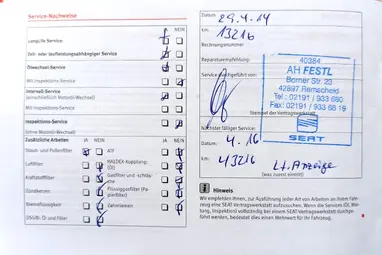 Service-Nachweise
JA NEIN
LongLife Service
Zeit- oder laufleistungsabhängiger Service
Ölwechsel-Service
Mit Inspektions-Service
Intervall-Service
(einschließlich Motoröl-Wechsel)
Mit Inspektions-Service
Inspektions-Service
(ohne Motoröl-Wechsel)
Zusätzliche Arbeiten JA NEIN JA NEIN
Staub- und Pollenfilter
ATF
Luftfilter
HALDEX-Kupplung:
(Öl)
Kraftstofffilter
Gasfilter und -schläu-
che
Zündkerzen
Flüssiggasfilter (Pa-
pierfilter)
Bremsflüssigkeit
Zahnriemen
DSG®: Öl und Filter
Datum
29.4.14
km:
13216
Rechnungsnummer
Reparaturempfehlung:
Service durchgeführt von:
40384
AH FESTL
Borner Str. 23
42897 Remscheid
Tel.: 02191 / 933 680
Fax: 02191 / 933 68 19
SEAT
Stempel der Vertragswerkstatt
Nächster fälliger Service:
Datum
4.16
km:
43216
Lt. Anzeige
(was zuerst eintritt)
Hinweis
Wir empfehlen Ihnen, zur Ausführung jeder Art von Arbeiten an Ihrem Fahr-
zeug eine SEAT Vertragswerkstatt aufzusuchen. Wenn die Services (Öl, War-
tung, Inspektion) vollständig bei einem SEAT-Vertragswerkstatt durchgeführt
werden, bedeutet dies einen Mehrwert für Ihr Fahrzeug.